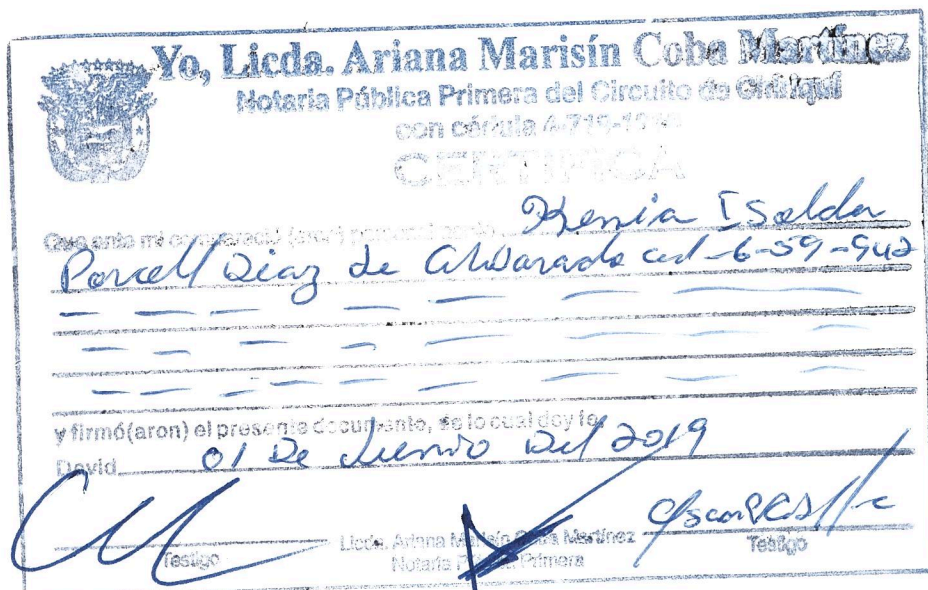 Yo, Licda. Ariana Marisín Coba Martínez
Notaria Pública Primera del Circuito de Chiriquí
con cédula 4-719-
CERTIFICA
Que ante mi compareció (aron) Kenia Iselda
Porcell Diaz de Alvarado ced-6-59-942
y firmó(aron) el presente documento, de lo cual doy fe
David 01 De Junio Del 2019
Testigo Licda. Ariana Marisín Coba Martínez Testigo
Notaria Pública Primera